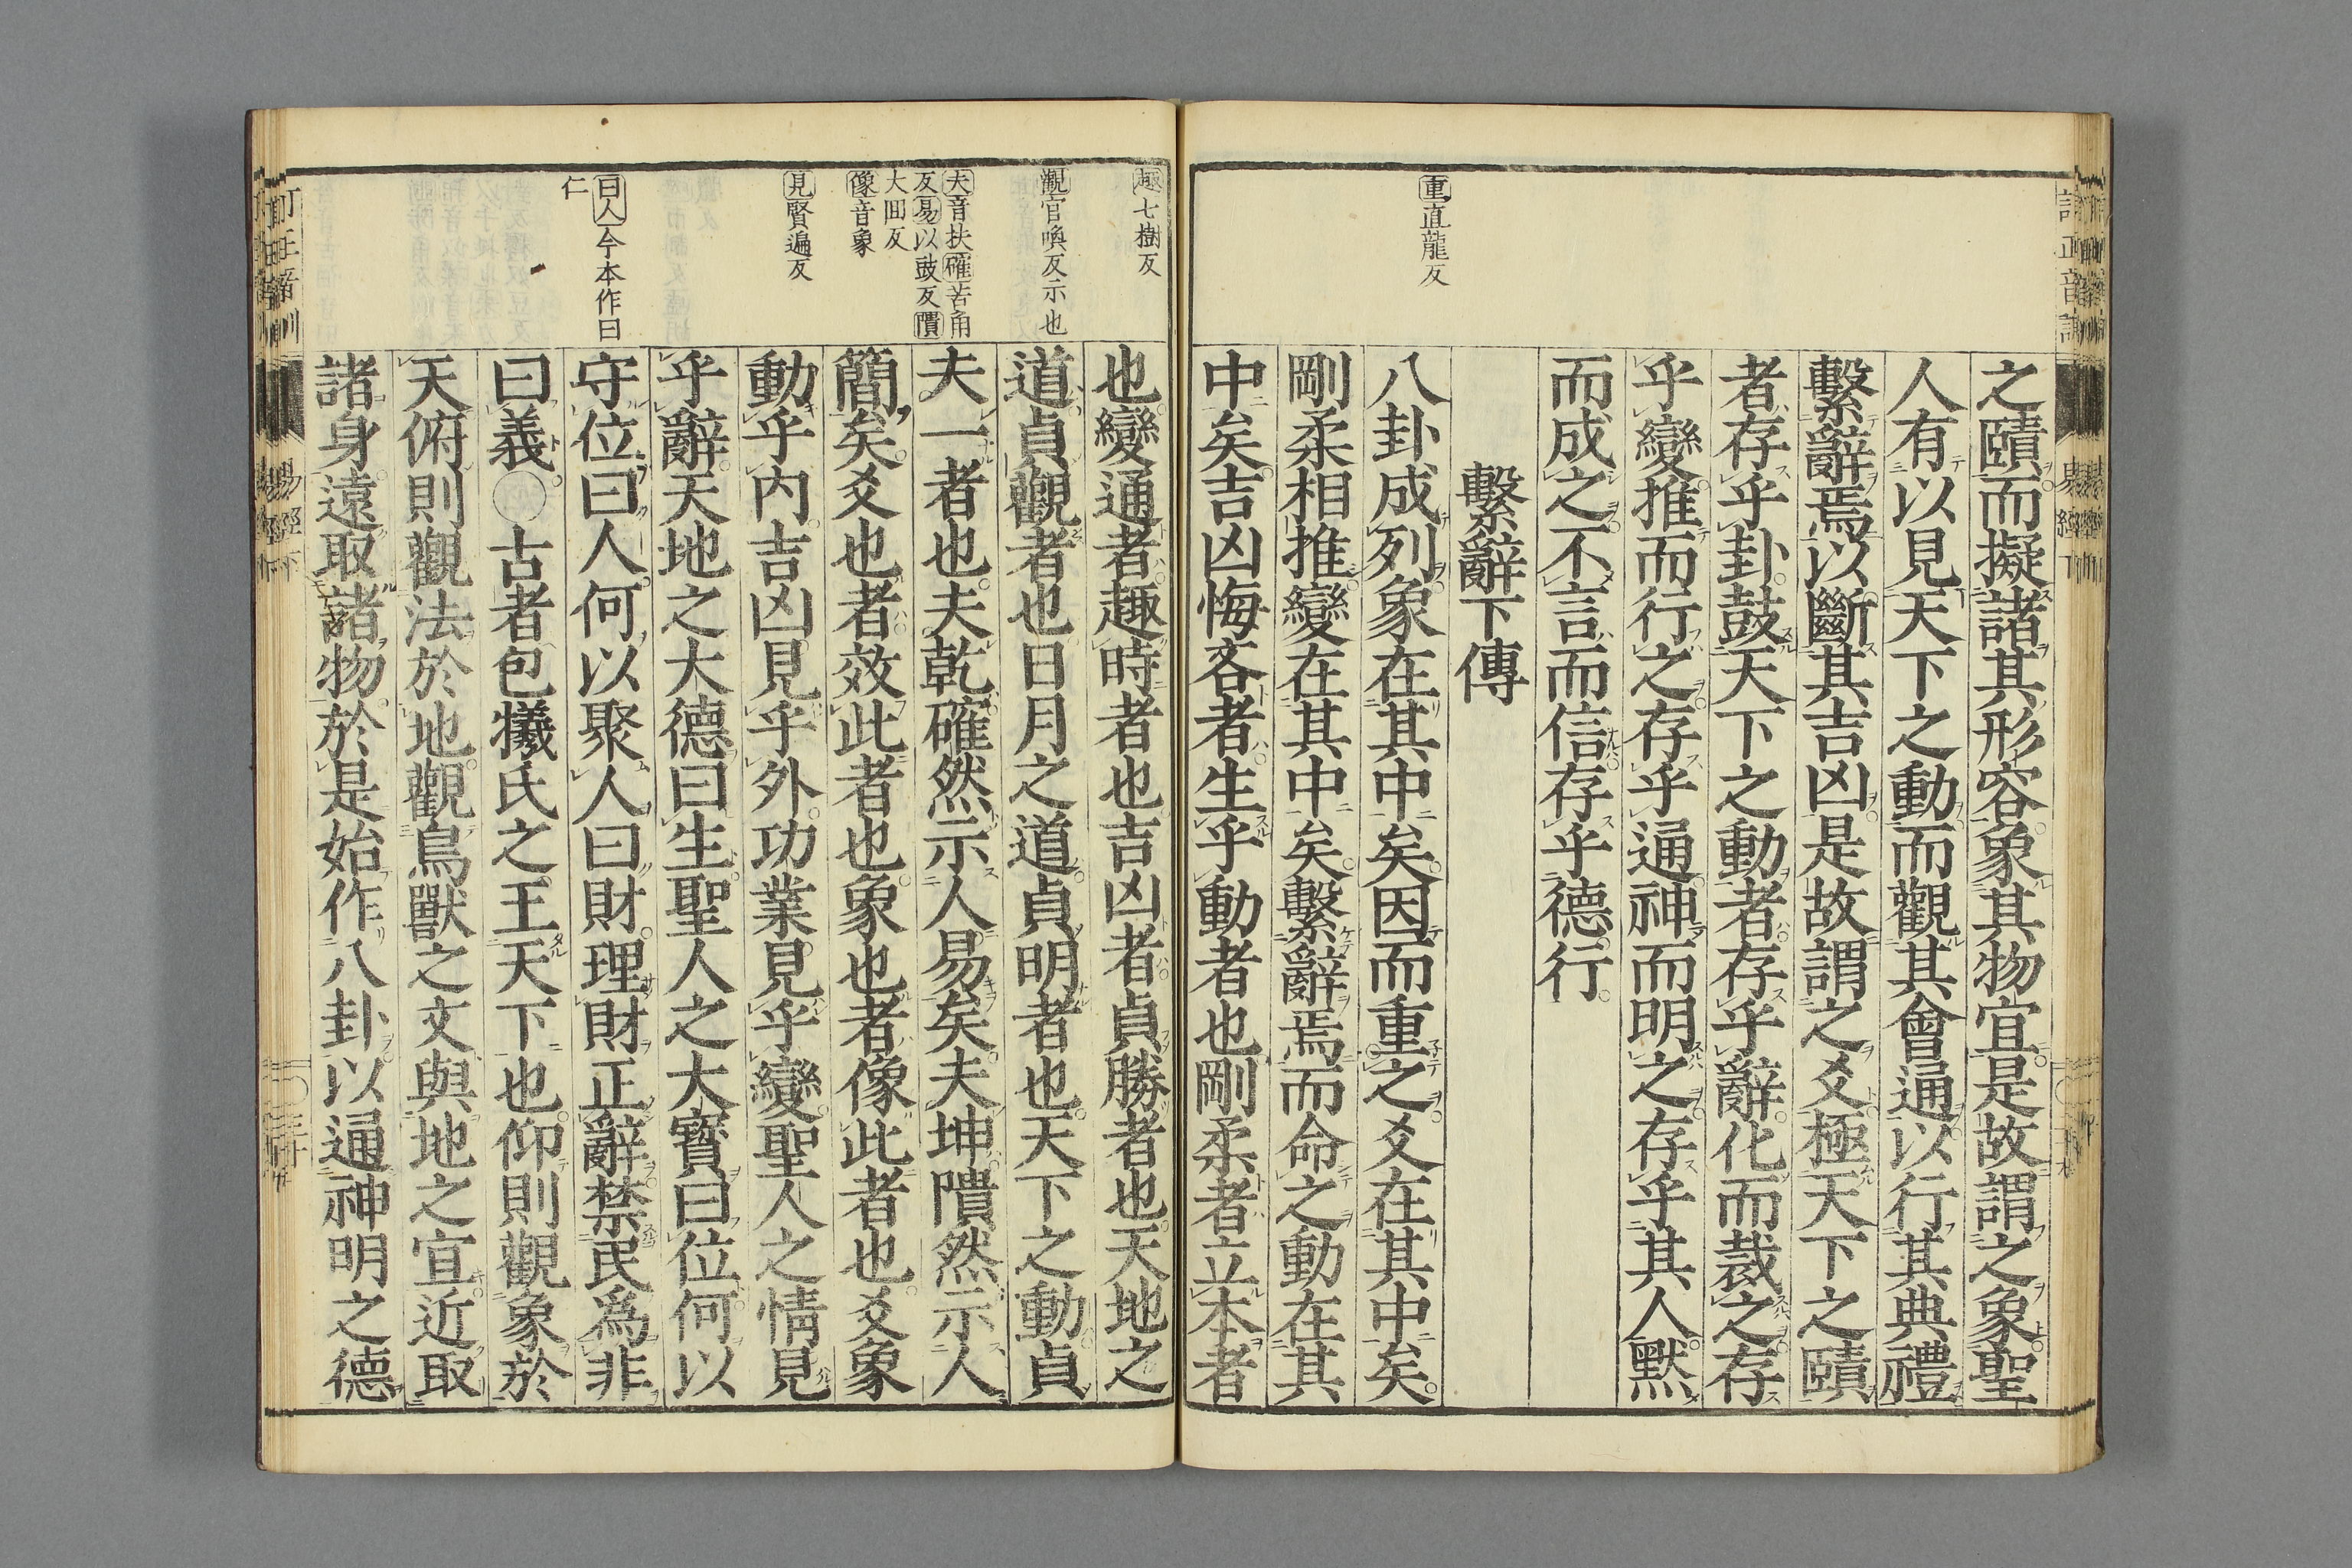 之賾而擬諸其形容象其物宜是故謂之象聖
人有以見天下之動而觀其會通以行其典禮
繫辭焉以斷其吉凶是故謂之爻極天下之賾
者存乎卦鼓天下之動者存乎辭化而裁之存
乎變推而行之存乎通神而明之存乎其人默
而成之不言而信存乎德行
繫辭下傳
重直龍反
八卦成列象在其中矣因而重之爻在其中矣
剛柔相推變在其中矣繫辭焉而命之動在其
中矣吉凶悔吝者生乎動者也剛柔者立本者
趣七樹反
也變通者趣時者也吉凶者貞勝者也天地之
觀官喚反示也
道貞觀者也日月之道貞明者也天下之動貞
夫音扶確苦角
反易以豉反隤
大回反
夫一者也夫乾確然示人易矣夫坤隤然示人
像音象
簡矣爻也者效此者也象也者像此者也爻象
見賢遍反
動乎內吉凶見乎外功業見乎變聖人之情見
乎辭天地之大德曰生聖人之大寶曰位何以
曰人今本作曰
仁
守位曰人何以聚人曰財理財正辭禁民爲非
曰義○古者包犧氏之王天下也仰則觀象於
天俯則觀法於地觀鳥獸之文與地之宜近取
諸身遠取諸物於是始作八卦以通神明之德